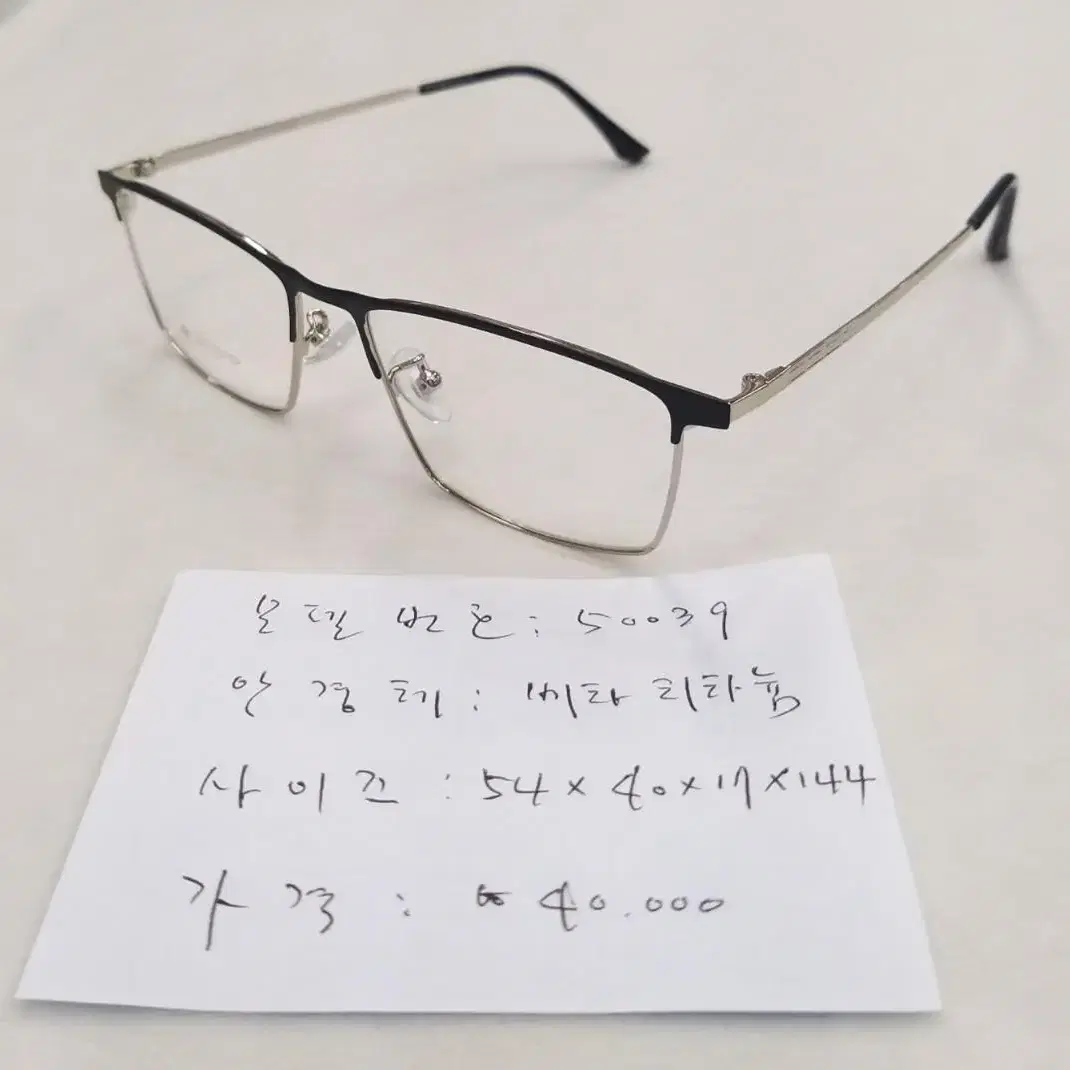 모델번호: 50039
안경테: 베타티타늄
사이즈: 54×40×17×144
가격: ₩40.000